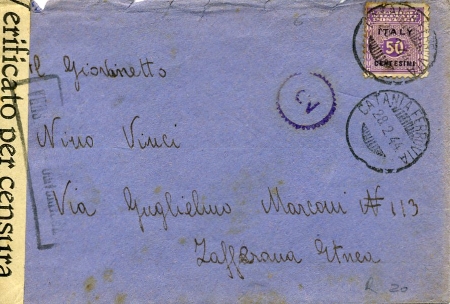 Verificato per censura
ITALY
50
CENTESIMI
CATANIA FERROVIA
28.2.44
Il Giovanetto
Nino Vinci
Via Guglielmo Marconi # 113
Zafferana Etnea
R 20